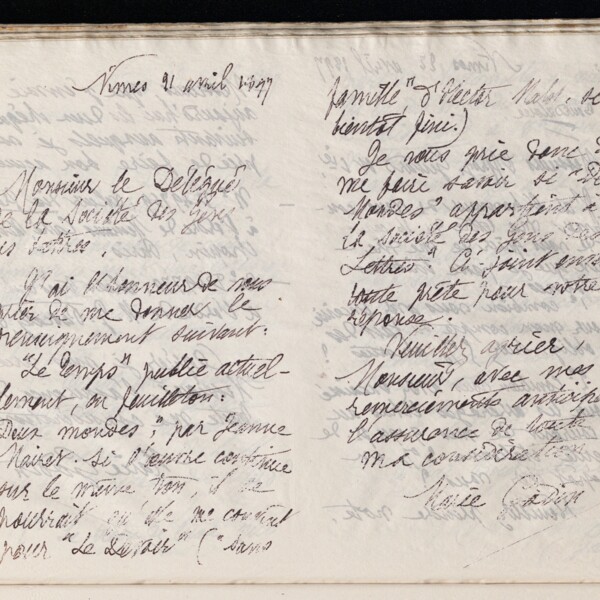 Nimes 21 avril 1897
Monsieur le Délégué
de la Société des Gens
des Lettres,
J'ai l'honneur de vous
prier de me donner le
renseignement suivant:
"Le Temps" publie actuel-
lement, en feuilleton:
"Deux mondes", par Jeanne
Mairet. Si l'œuvre continue
sur le même ton, il se
pourrait qu'elle me convînt
pour "Le Devoir" ("Sans
famille" d'Hector Malot se
bientôt fini.)
Je vous prie donc de
me faire savoir si "Deux
Mondes" appartient à
la société des Gens des
Lettres. Ci joint enve
toute prête pour votre
réponse.
Veuillez agréer,
Monsieur, avec mes
remerciements anticipés
l'assurance de toute
ma considération
Marie Godin